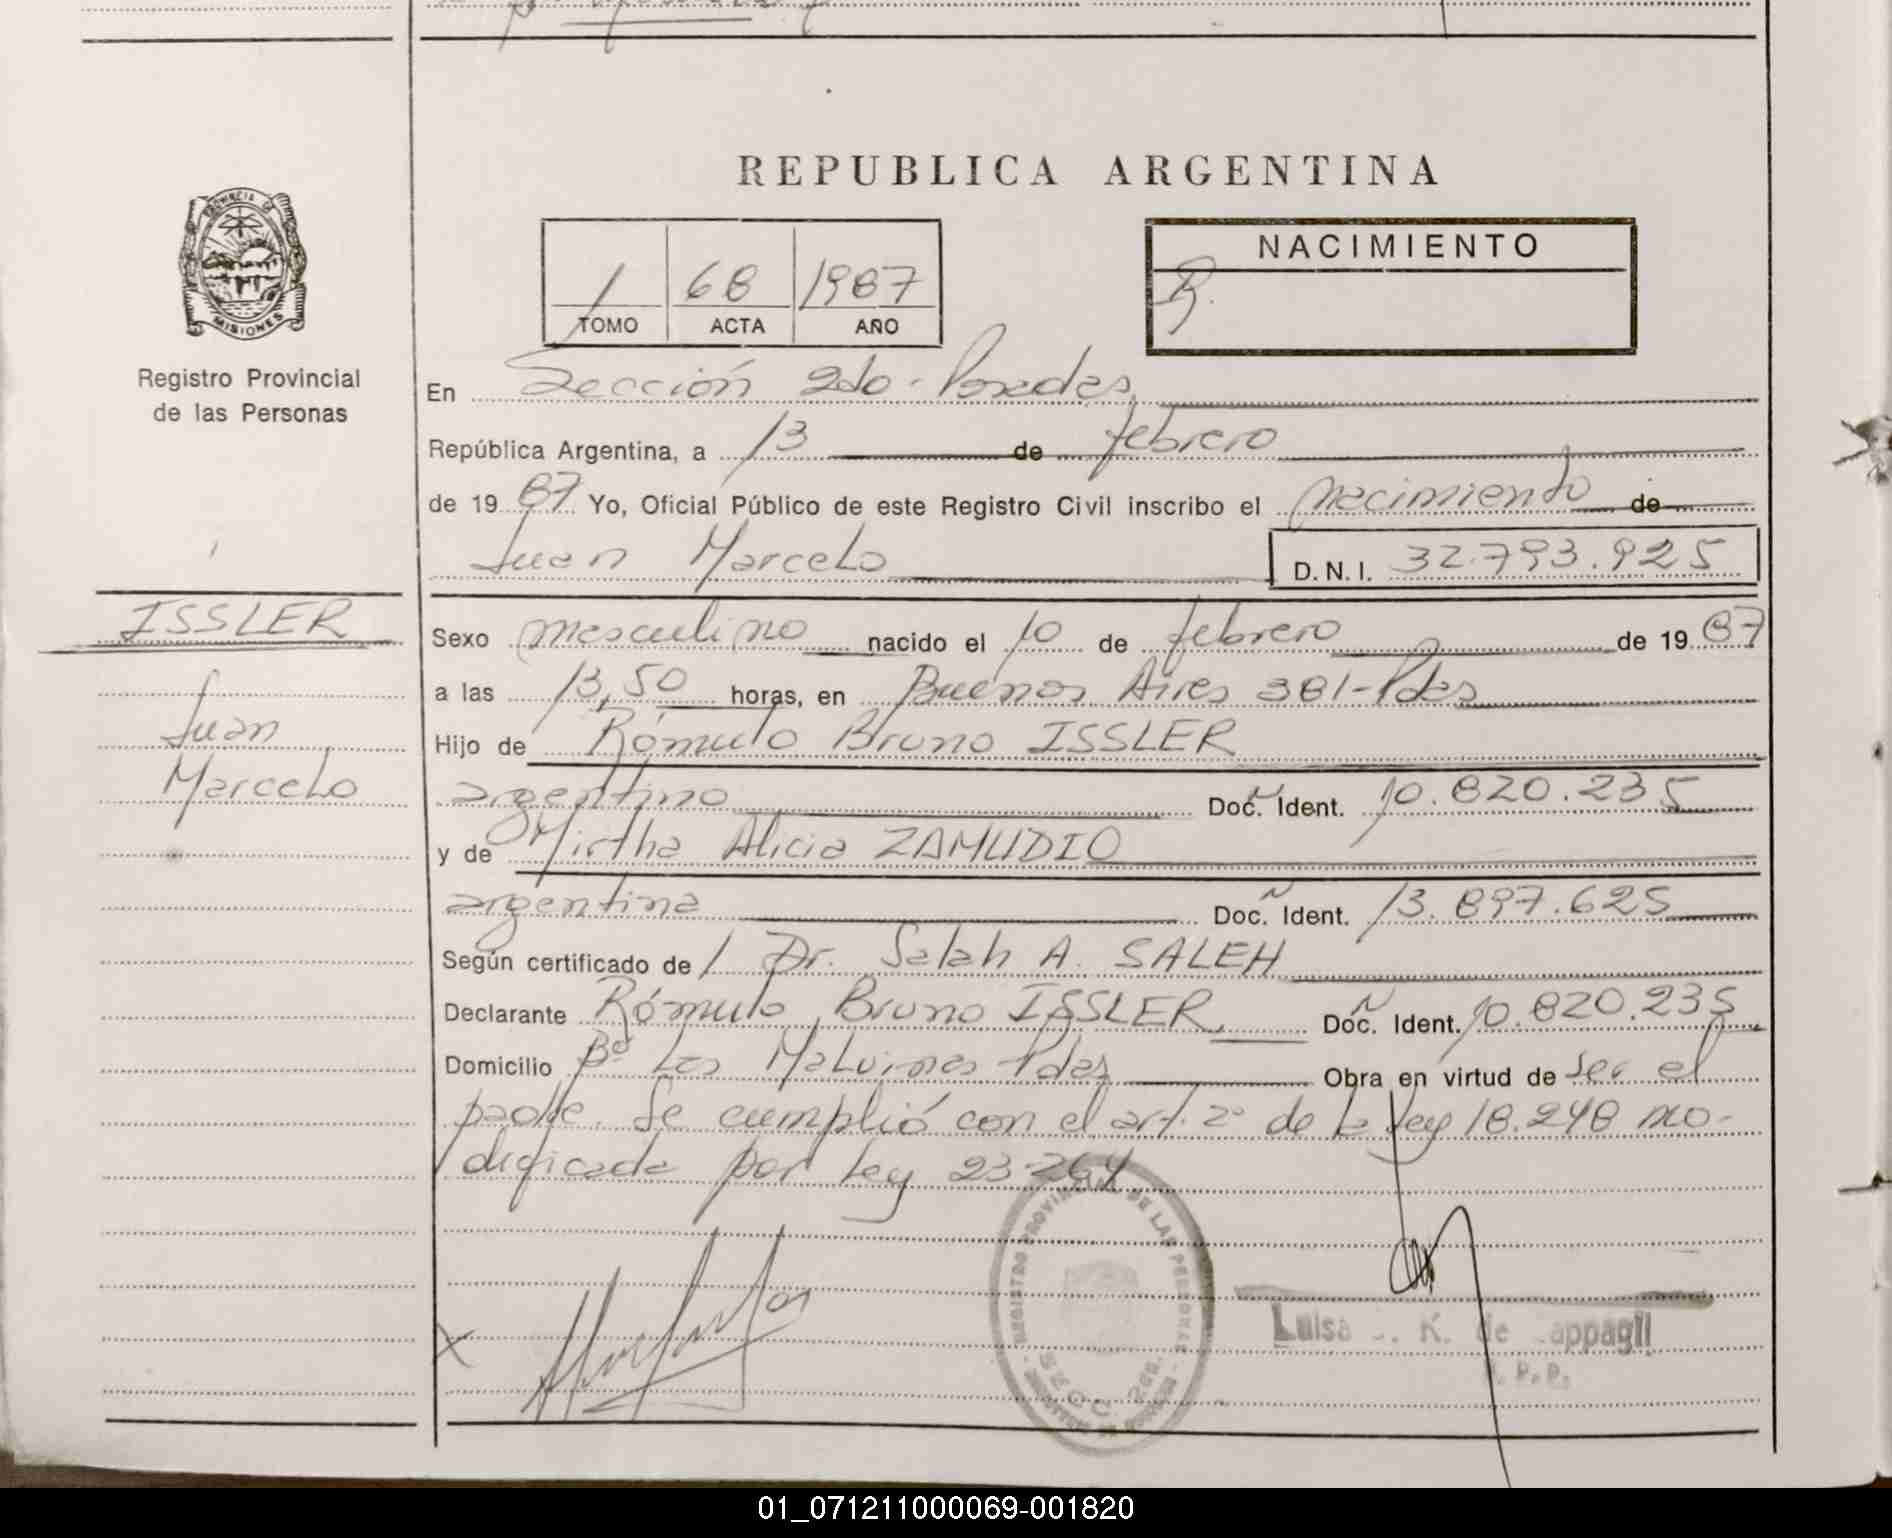 REPUBLICA ARGENTINA
PROVINCIA DE
MISIONES
Registro Provincial
de las Personas
1 68 1987
TOMO ACTA AÑO
NACIMIENTO
En Sección 2do - Posadas
República Argentina, a 13 de febrero
de 1987 Yo, Oficial Público de este Registro Civil inscribo el nacimiento de
Juan Marcelo D.N.I. 32.793.925
ISSLER
Juan
Marcelo
Sexo masculino nacido el 10 de febrero de 1987
a las 13,50 horas, en Buenos Aires 381-Pdas
Hijo de Rómulo Bruno ISSLER
argentino Doc. Ident. 10.820.235
y de Mirtha Alicia ZAMUDIO
argentina Doc. Ident. 13.897.625
Según certificado de Dr. Salah A. SALEH
Declarante Rómulo Bruno ISSLER Doc. Ident. 10.820.235
Domicilio Bº Las Malvinas Pdas Obra en virtud de ser el
padre. Se cumplió con el art. 2º de la Ley 18.248 mo-
dificada por Ley 23.264
REGISTRO PROVINCIAL DE LAS PERSONAS
Luisa K. de
01_071211000069-001820